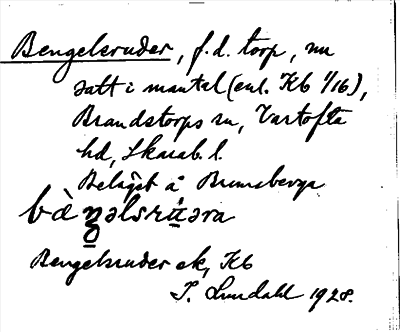 Bengelsruder, f.d. torp, nu
satt i mantal (enl. Kb 1/16),
Brandstorps sn, Vartofta
hd, Skarab. l.
Beläget å Brunsberga
bengelsruder ek, Kb
S. Lundahl 1928.